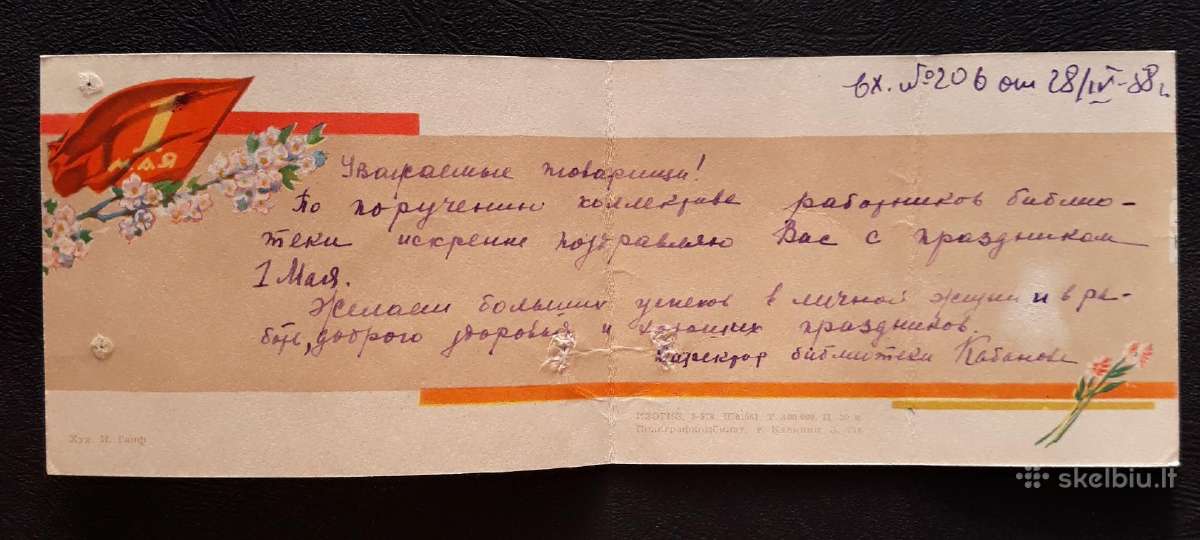 вх. № 206 от 28/IV-58г.
1
МАЯ
Уважаемые товарищи!
По поручению коллектива работников библио-
теки искренне поздравляю Вас с праздником
1 Мая.
Желаем больших успехов в личной жизни и в ра-
боте, доброго здоровья и хороших праздников.
Директор библиотеки Кабанова
Худ. И. Ганф
ИЗОГИЗ,
Полиграфкомбинат, г. Калинин З.
skelbiu.lt